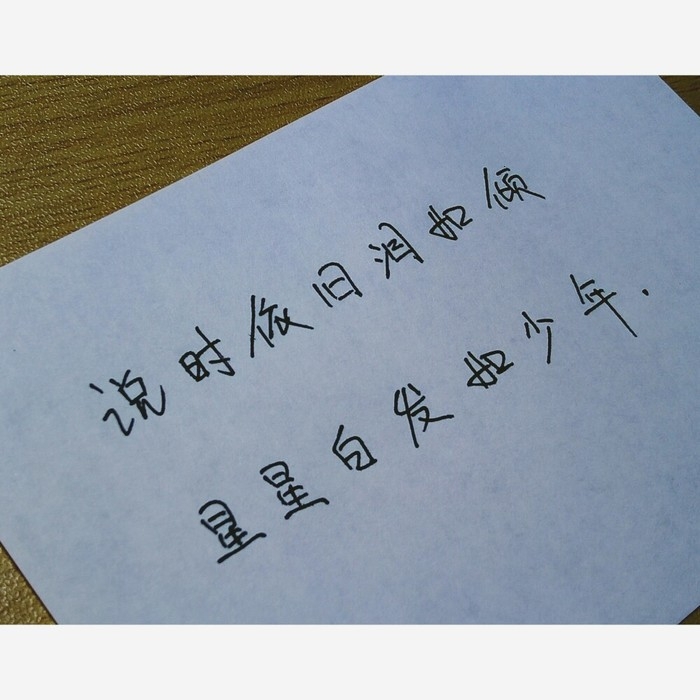 说时依旧泪如倾
星星白发如少年.